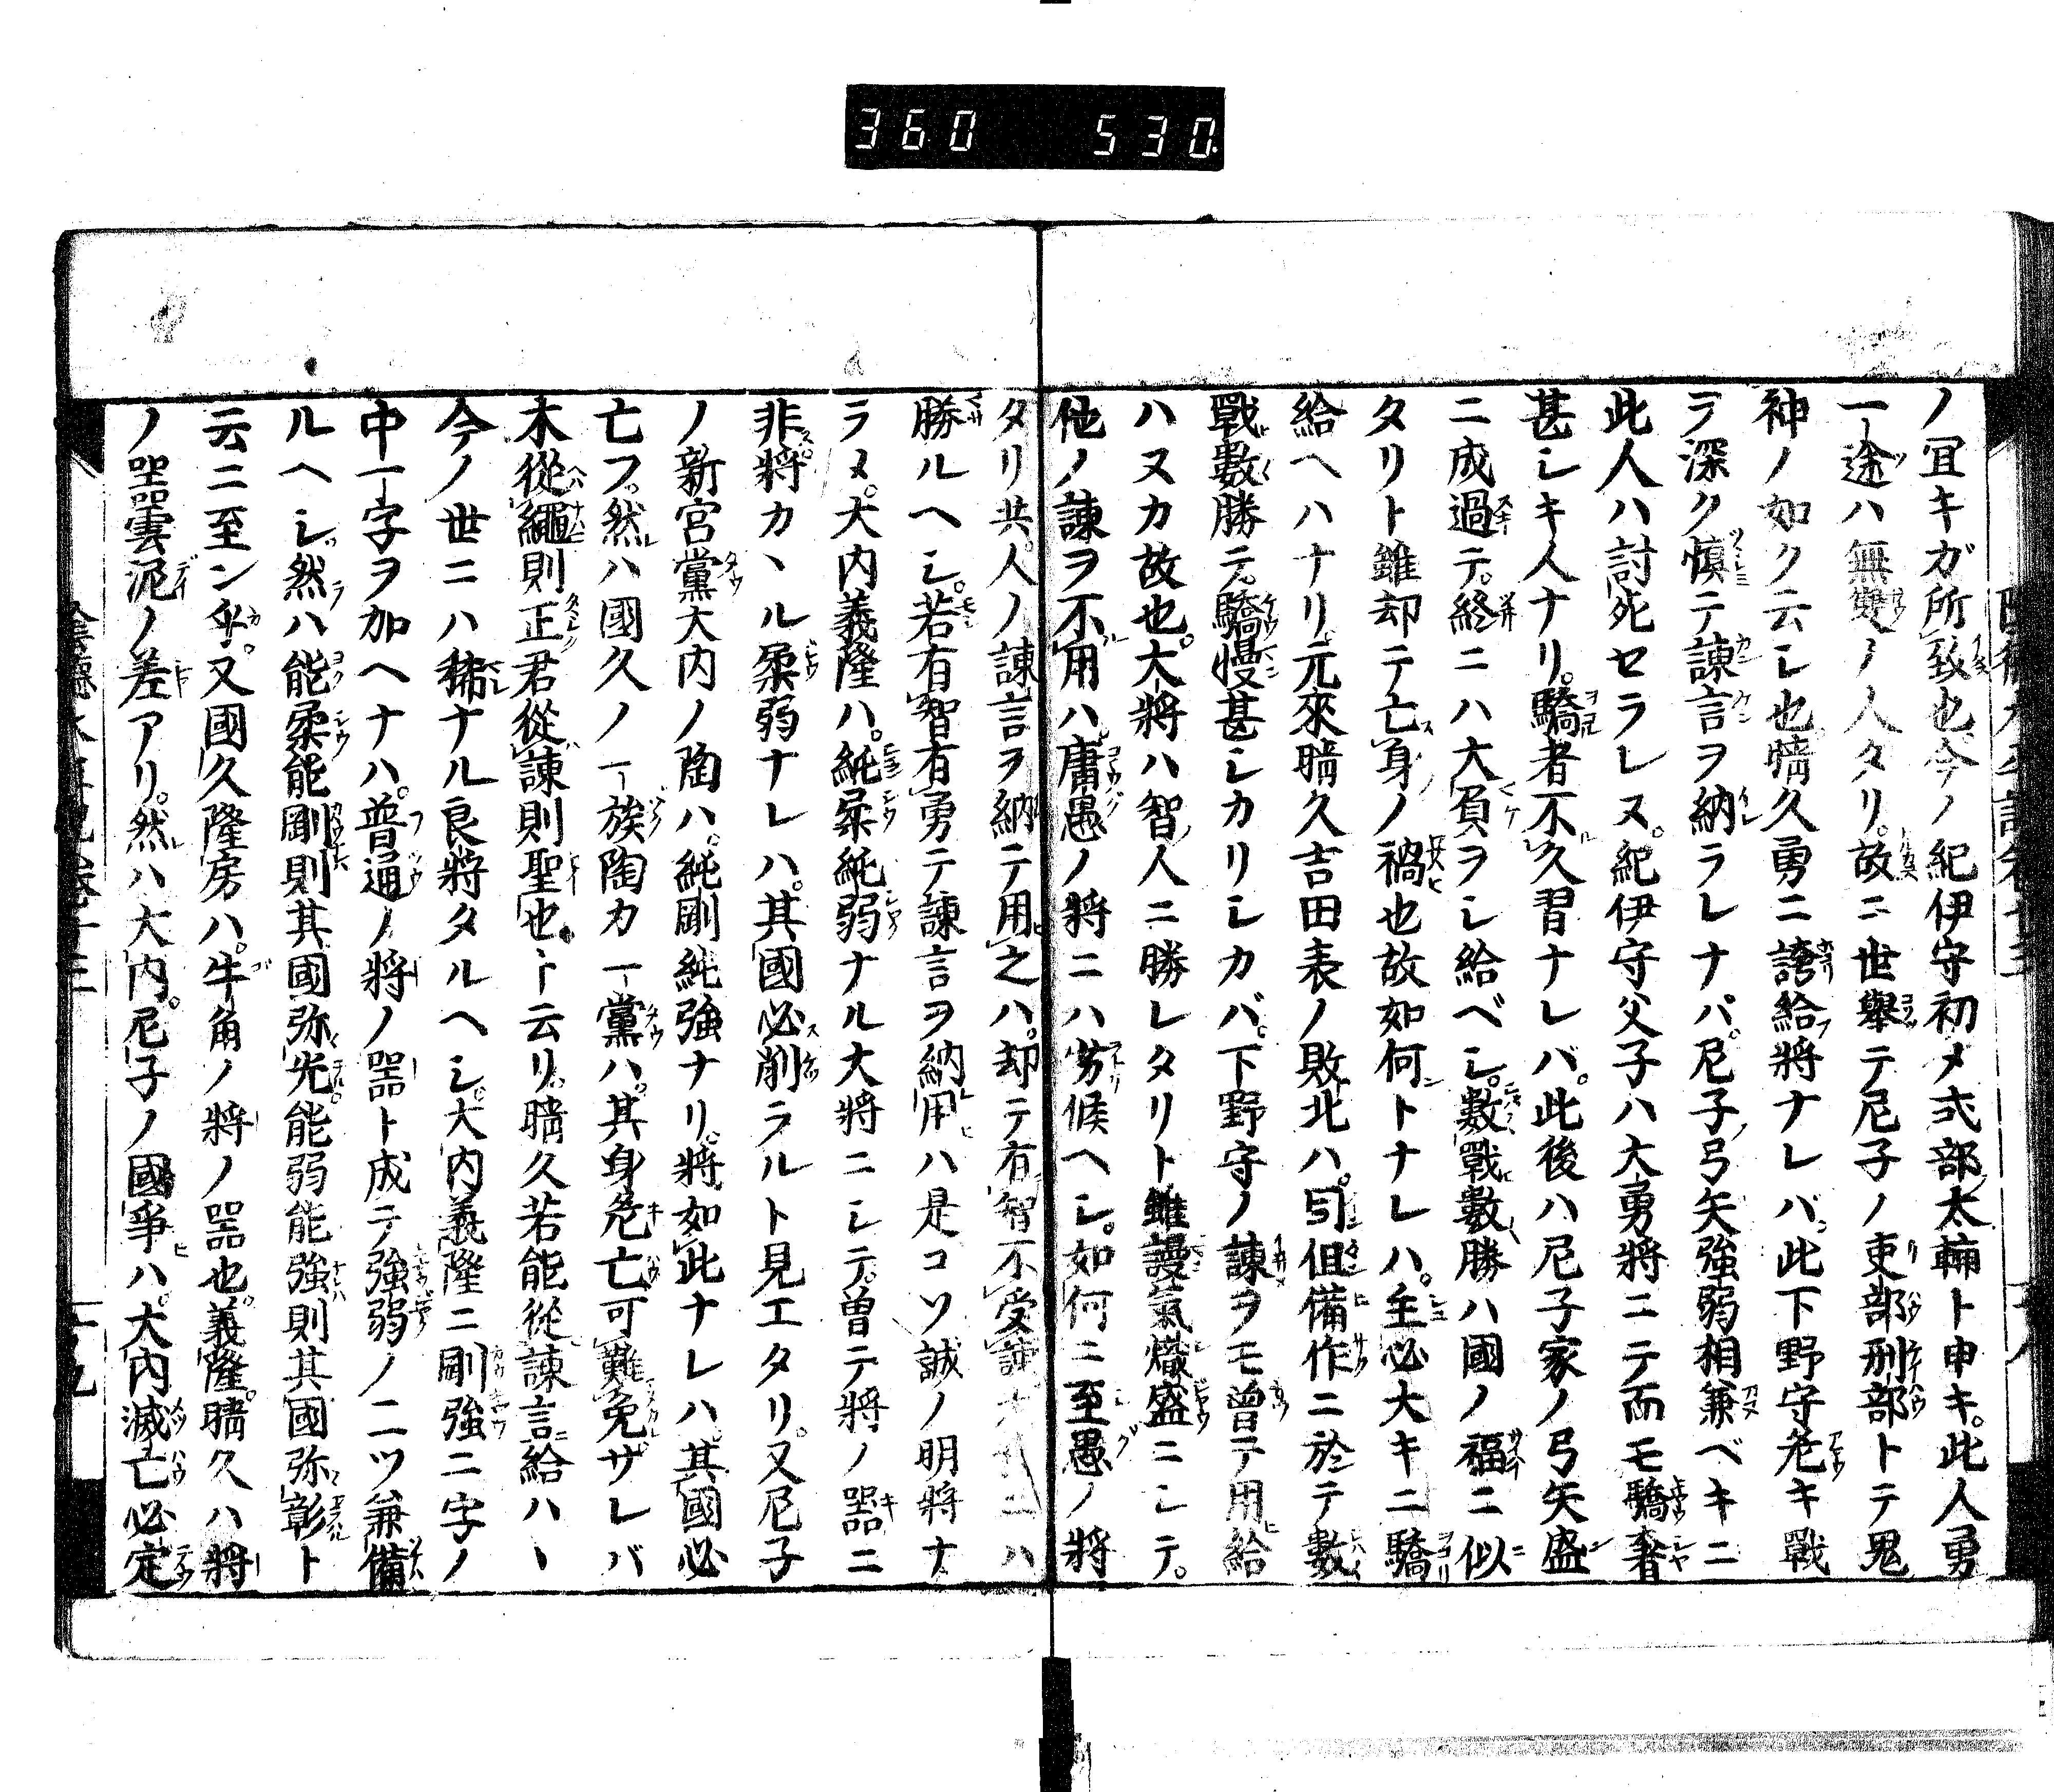 360 530
ノ冝キガ所致也今ノ紀伊守初メ式部太輔ト申キ。此人勇
一途ハ無雙ノ人タリ。故ニ世舉テ尼子ノ吏部刑部トテ鬼
神ノ如ク云シ也晴久勇ニ誇給フ將ナレバ此下野守危キ戰
ヲ深ク慎テ諫言ヲ納ラレナバ。尼子ノ弓矢強弱相兼ベキニ
此人ハ討死セラレヌ。紀伊守父子ハ大勇將ニテ而モ驕奢
甚シキ人ナリ。驕者不久習ナレバ。此後ハ尼子家ノ弓矢盛
ニ成過テ。終ニハ大負ヲシ給ベシ。數戰數勝ハ國ノ福ニ似
タリト雖却テ亡身ノ禍也故如何トナレハ。主必大キニ驕
給ヘハナリ。元來晴久吉田表ノ敗北ハ。但備作ニ於テ數
戰數勝テ。驕慢甚シカリシカバ。下野守ノ諫ヲモ曽テ用給
ハヌカ故也。大將ハ智人ニ勝レタリト雖謾氣熾盛ニシテ。
他ノ諫ヲ不用ハ。庸愚ノ將ニハ劣候ヘシ。如何ニ至愚ノ將
タリ共人ノ諫言ヲ納テ用之ハ。却テ有智不受諫ニハ
勝ルヘシ。若有智有勇テ諫言ヲ納用ハ是コソ誠ノ明將ナ
ラメ。大内義隆ハ。純柔純弱ナル大將ニシテ。曽テ將ノ噐ニ
非。將カヽル柔弱ナレハ。其國必削ラルト見エタリ。又尼子
ノ新宮黨大内ノ陶ハ。純剛純強ナリ。將如此ナレハ。其國必
亡フ。然ハ國久ノ一族陶カ一黨ハ。其身危亡可難免ザレバ
木從繩則正君從諫則聖也ト云リ。晴久若能從諫言給ハヽ
今ノ世ニハ稀ナル良將タルヘシ。大内義隆ニ剛強ニ字ノ
中一字ヲ加ヘナハ。普通ノ將ノ噐ト成テ強弱ノ二ツ兼備
ルヘシ。然ハ能柔能剛則其國弥光。能弱能強則其國弥彰ト
云ニ至ン乎。又國久隆房ハ。牛角ノ將ノ噐也。義隆。晴久ハ將
ノ噐雲泥ノ差アリ。然ハ大内。尼子ノ國爭ハ。大内滅亡必定